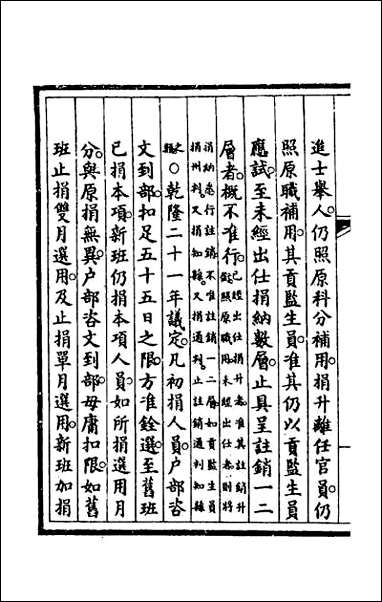 進士舉人。仍照原科分補用。捐升離任官員。仍
照原職補用。其貢監生員。准其仍以貢監生員
應試。至未經出仕捐納數層。止具呈註銷一二
層者。概不准行。
已經出仕捐升者。准其註銷升
照原職用。未經出仕者。則將
捐納悉行註銷。不准註銷一二層。如貢監生員
捐州判。又捐知縣。又捐通判。止註銷通判知縣
○乾隆二十一年議定。凡初捐人員。户部咨
文到部。扣足五十五日之限。方准銓選。至舊班
已捐本項。新班仍捐本項人員。如所捐選用月
分。與原捐無異。户部咨文到部。毋庸扣限。如舊
班止捐雙月選用。及止捐單月選用。新班加捐